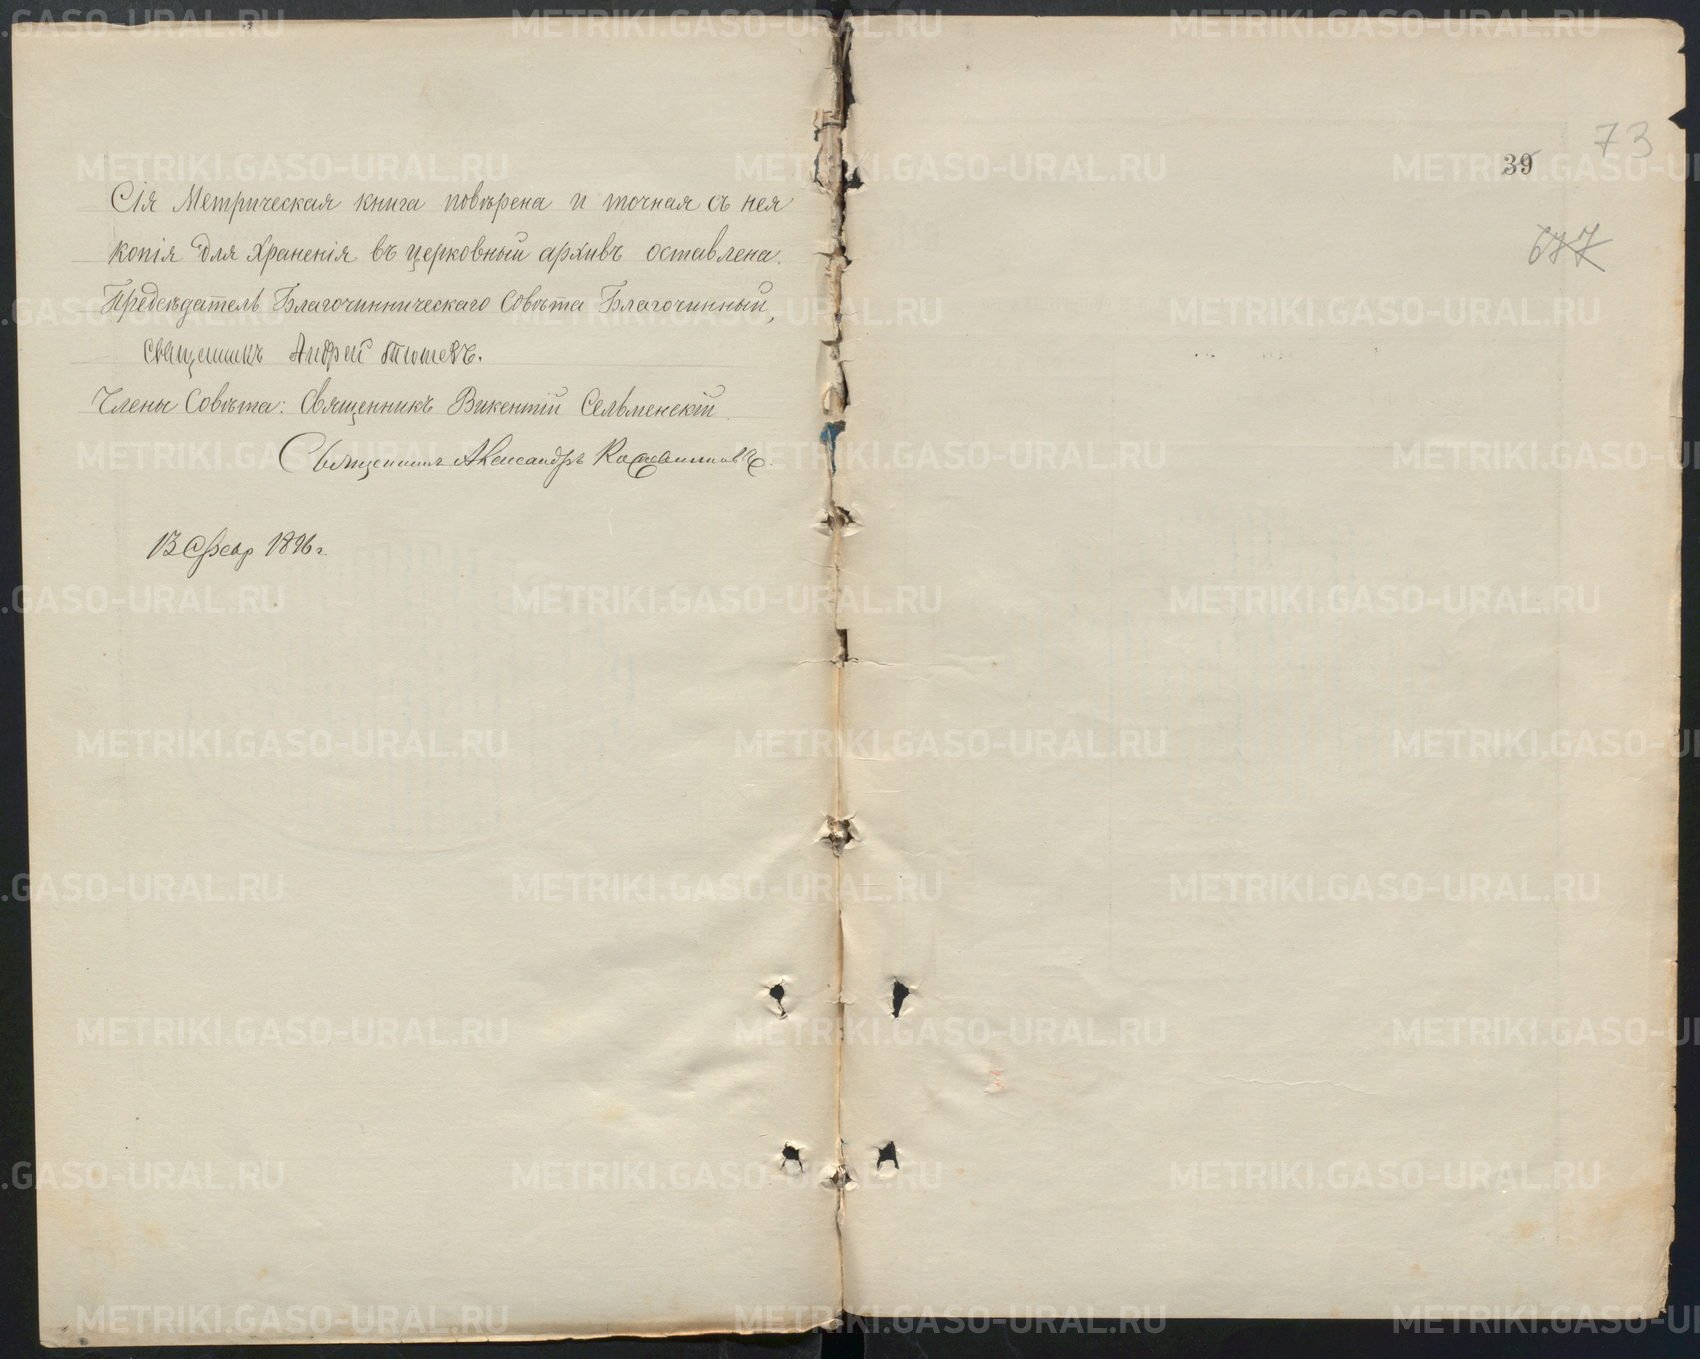 Сія Метрическая книга повѣрена и точная съ нея
копія для храненія въ церковный архивъ оставлена.
Предсѣдатель Благочинническаго Совѣта Благочинный,
священникъ Андрей
Члены Совѣта: Священникъ Викентій Сельменскій
Священникъ Александръ
13 Февр 1896 г.
39
73
677
METRIKI.GASO-URAL.RU